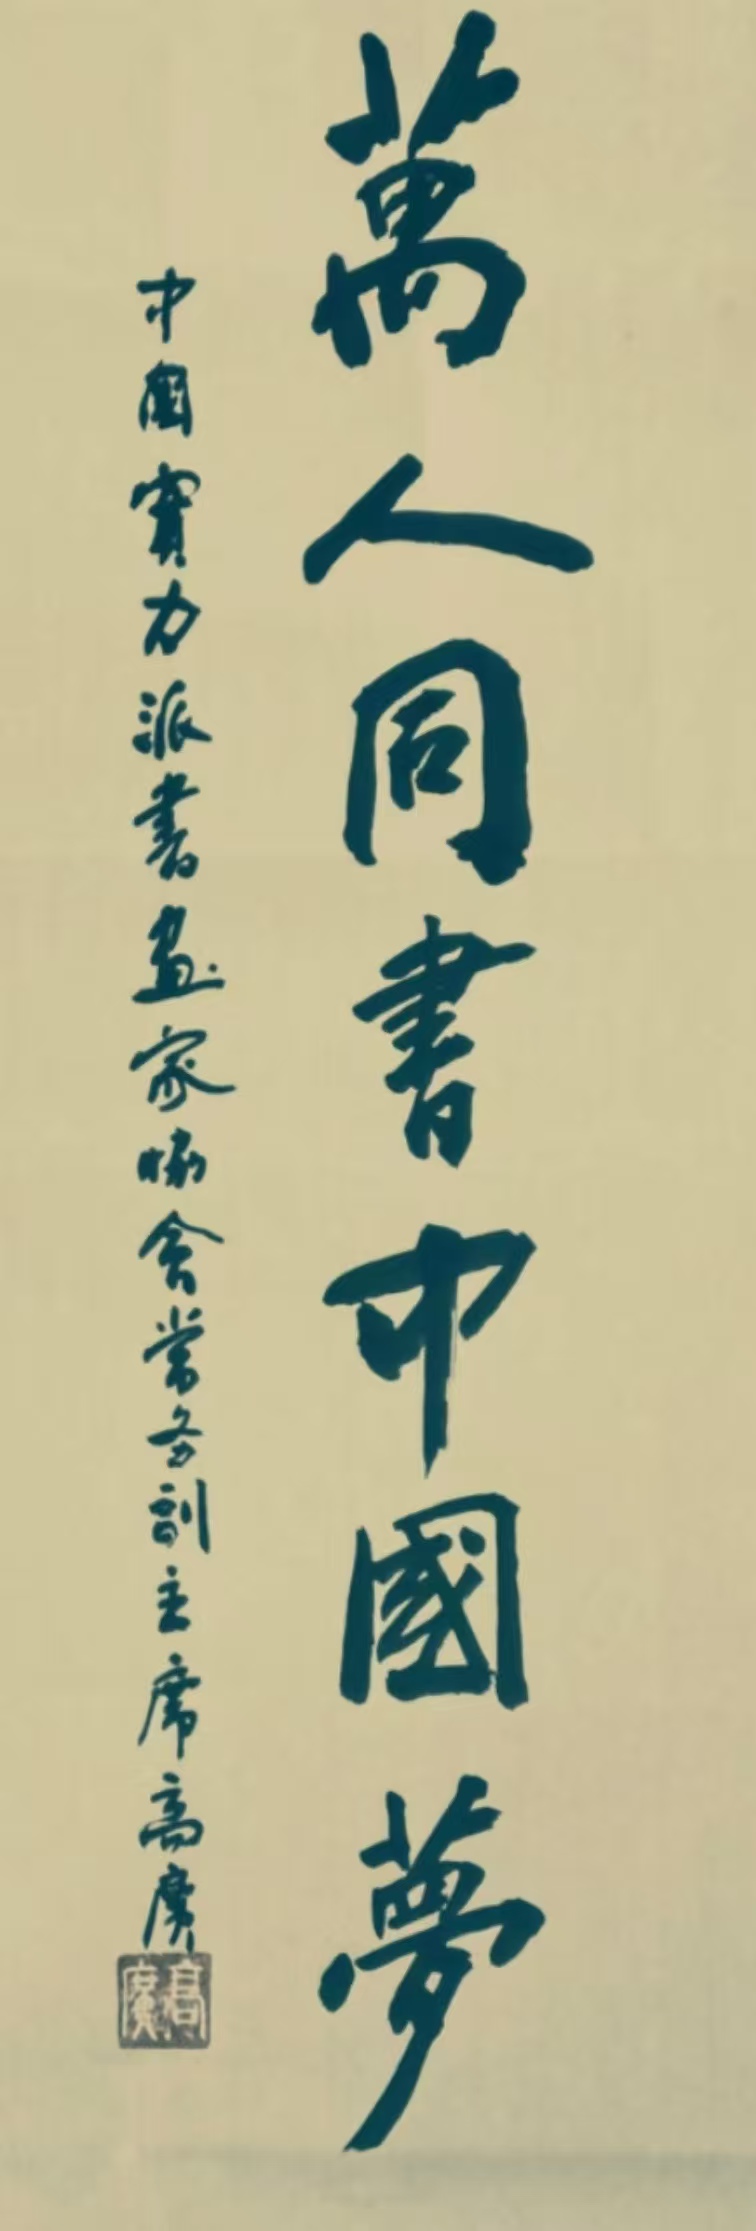 萬人同書中國夢
中國實力派書画家協會常务副主席高廣
高廣